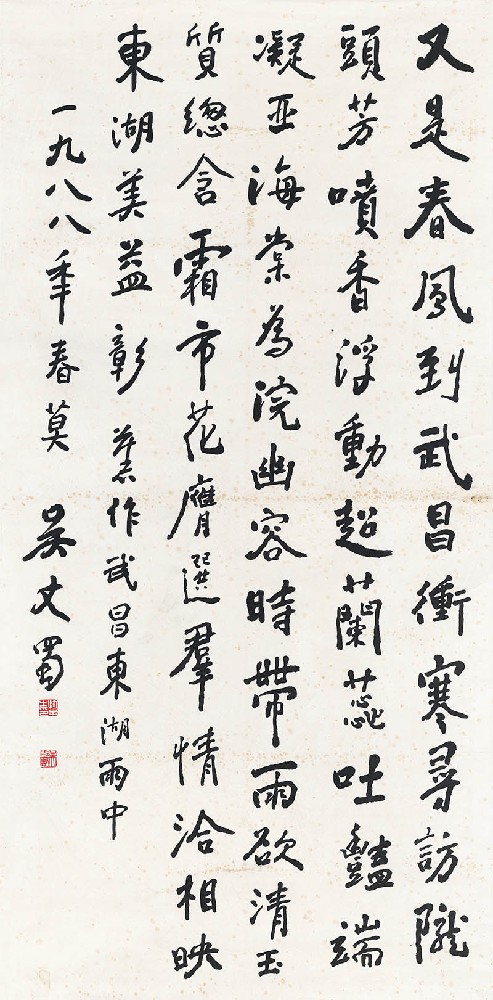 又是春風到武昌衝寒尋訪隴
頭芳噴香浮動超蘭蕊吐豔端
凝亚海棠為浣幽容時帶雨欲清玉
質總含霜市花膺選羣情洽相映
東湖美益彰 作武昌東湖雨中
一九八八年春莫 吴丈蜀